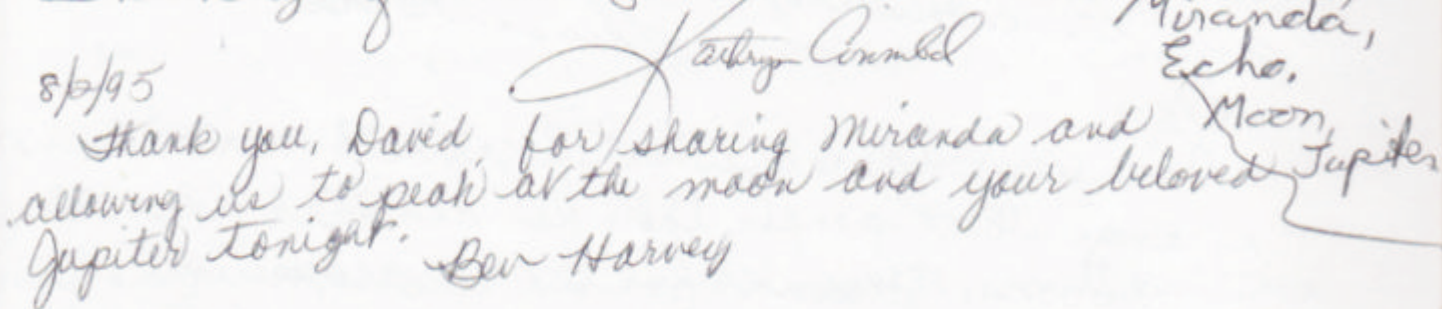 Kathryn
Miranda,
Echo,
Moon,
Jupiter
8/2/95
Thank you, David, for sharing Miranda and
allowing us to peak at the moon and your beloved
Jupiter tonight.
Bev Harvey